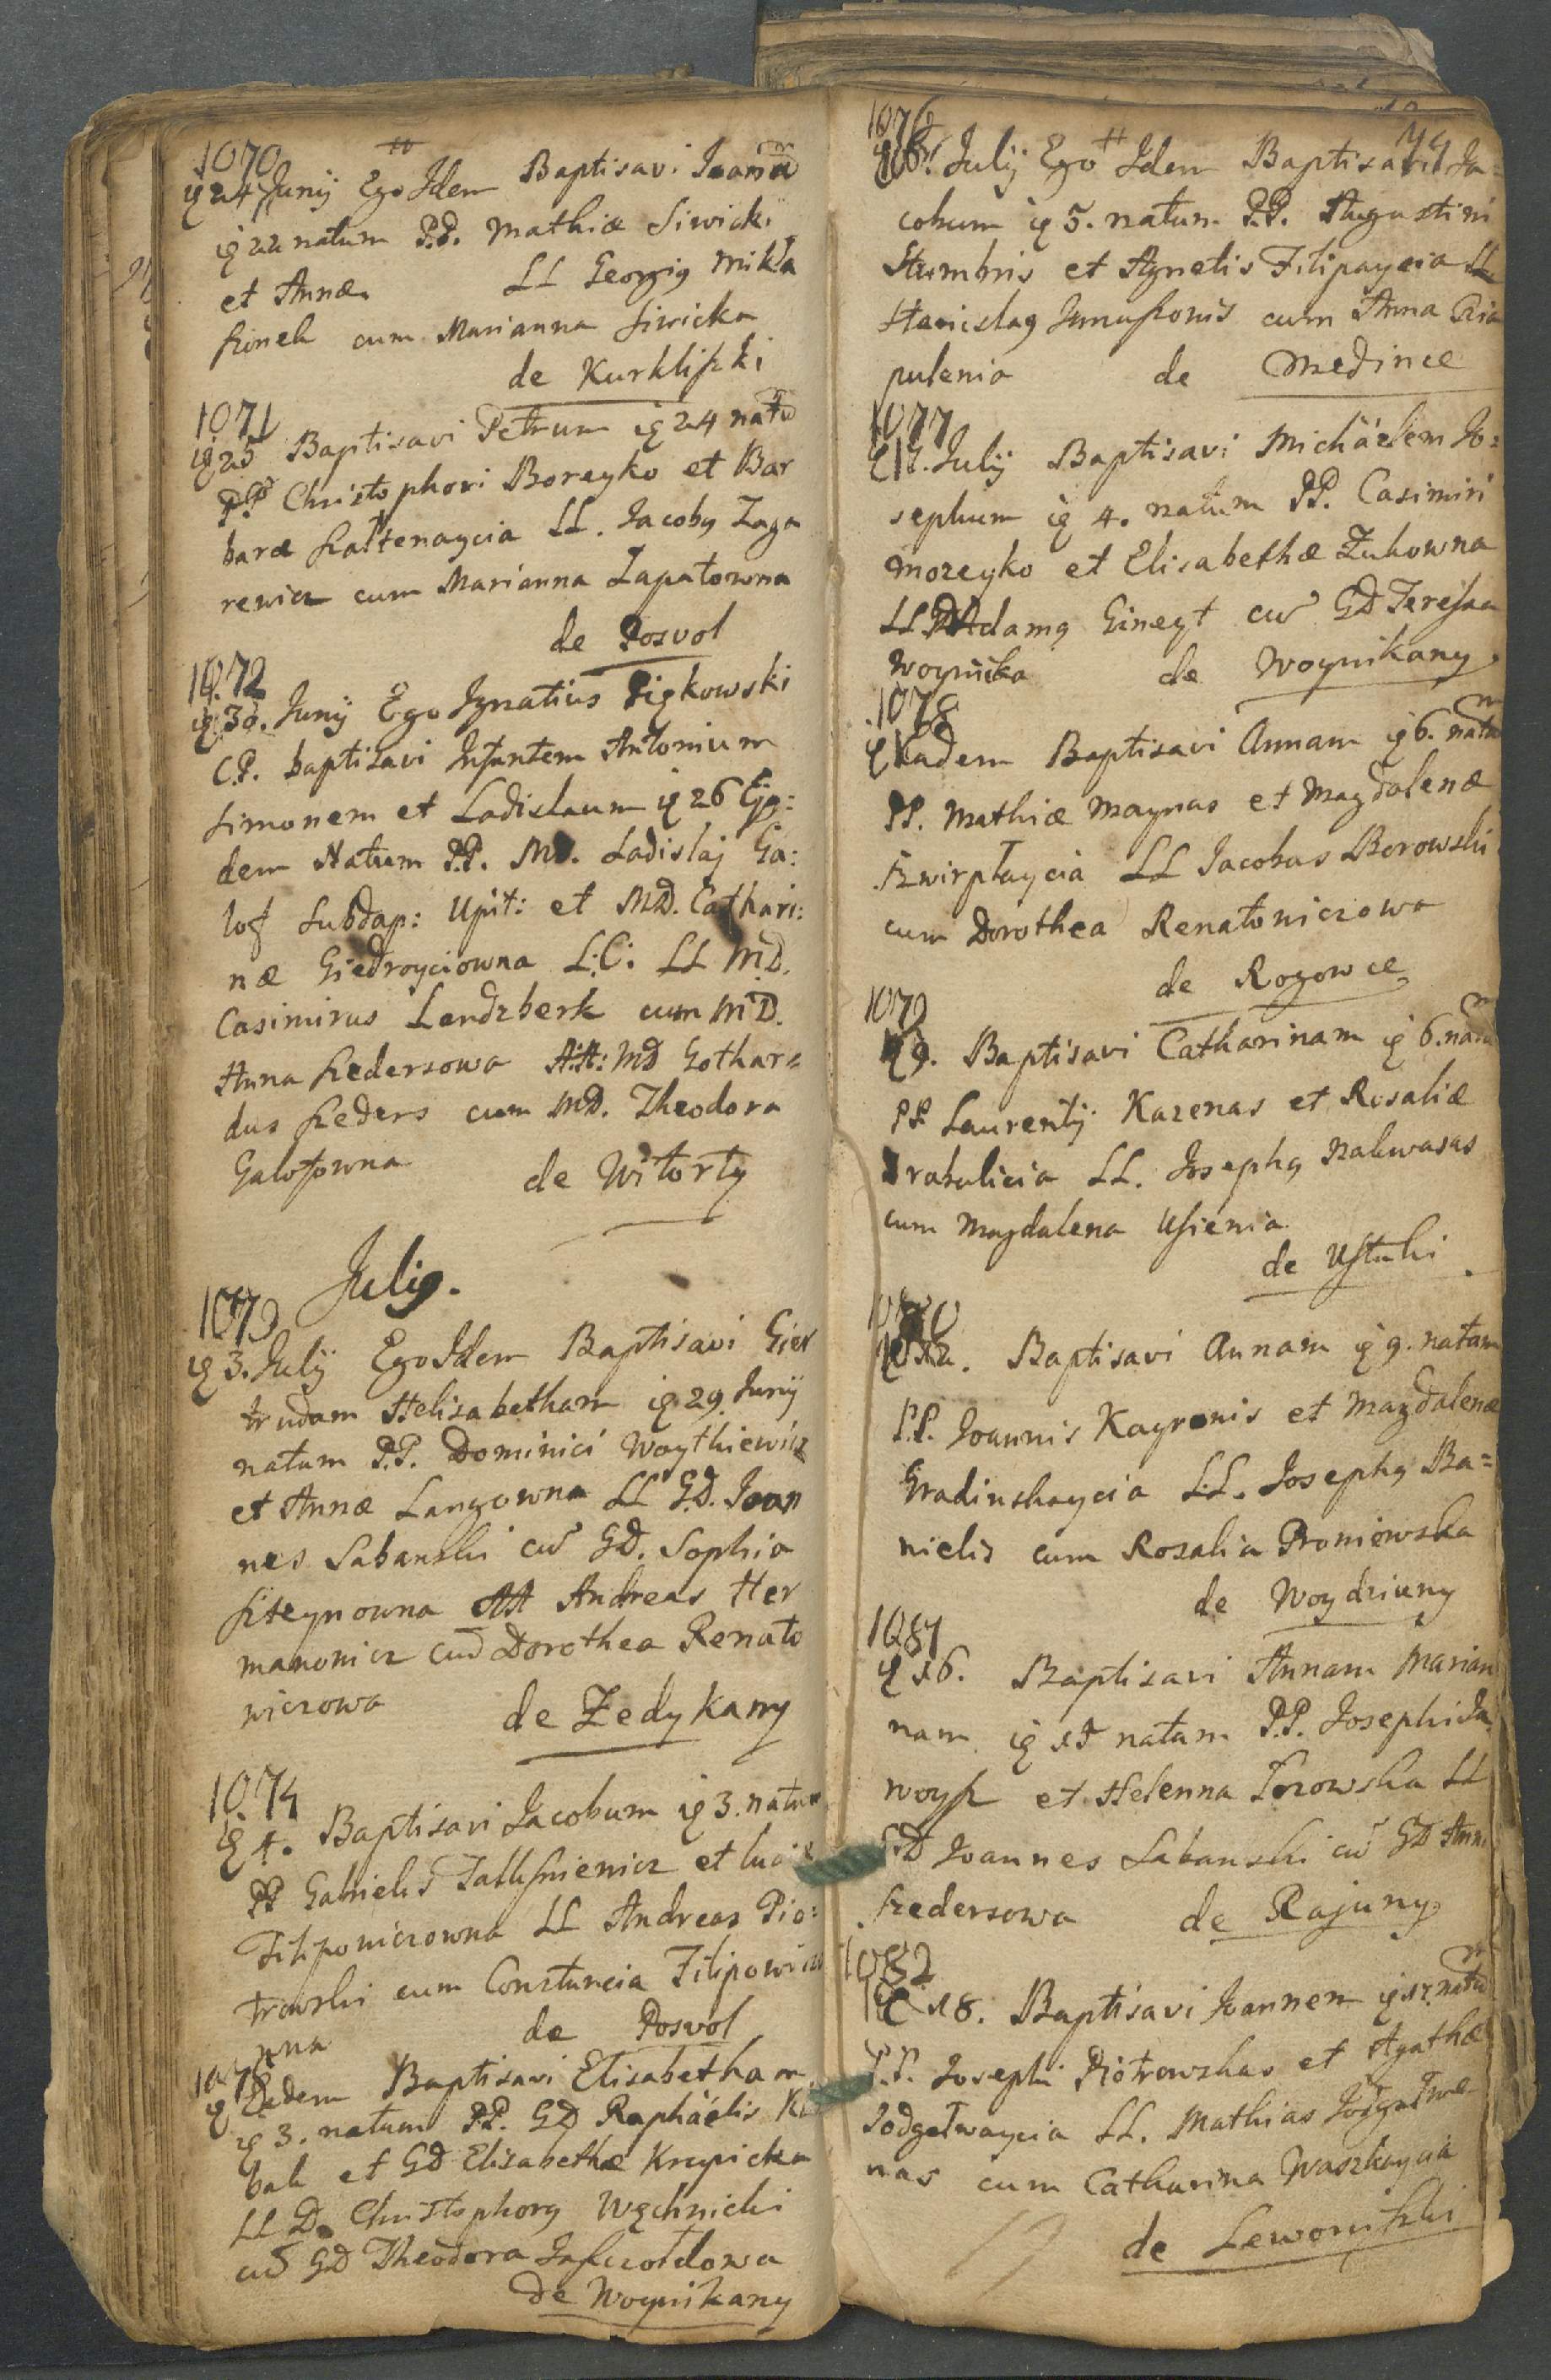 1070
24 Junij Ego Idem Baptisavi Joannẽ
22 natum P.P. Mathiæ Siwicki
et Annæ LL Georgiꝰ Mikła
szonek cum Marianna Siwicka
de Kurkliszki
1071
25 Baptisavi Petrum 24 natũ
P.P. Christophori Boreyko et Bar
baræ LL. Jacobꝰ Zaga
rewicz cum Marianna Łapatowna
de Posvol
1072
30. Junij Ego Ignatius Pigkowski
C.P. baptisavi Infantem Antonium
Simonem et Ladislaum 26 Ejꝰ:
dem Natum P.P. MD. Ladislaj Ga:
lof Subdap: Upit: et MD. Cathari:
næ Giedroyciowna L:C: LL MD.
Casimirus Lendzberk cum MD.
Anna Szedersowa A:A: MD Gothar=
dus Szeders cum MD. Theodora
Galofowna de Witorty
Juliꝰ.
1073
3. Julij Ego Idem Baptisavi Gier
trudam Helisabetham 29 Junij
natam P.P. Dominici Woythiewicz
et Annæ Langowna LL G.D. Joan
nes Labanski cũ GD. Sophia
Szteynowna AA Andreas Her
manowicz cũ Dorothea Renato
wiczowa de Zedykany
1074
4. Baptisavi Jacobum 3. natum
PP Gabrielis et
Filipowiczowna LL Andreas Pio:
trowski cum Constancia Filipowiczo
wna de Posvol
1075
Eadem Baptisavi Elisabetham
3. natam P.P. GD Raphaëlis
bak et GD Elisabethæ Krupicka
LL D. Christophorꝰ Węchnicki
cũ GD Theodora
de Woynikany
74
1076
6. Julij Ego Idem Baptisavi Ja=
cobum 5. natum P.P. Augustini
Stumbris et Agnetis Filipaycia LL
Stanislaꝰ cum Anna
pulenia de Medince
1077
Julij Baptisavi Michäelem Jo=
sephum 4. natum P.P. Casimiri
Mozeyko et Elisabethæ Zukowna
LL Adamꝰ Gineyt cũ GD Teressa
Woynicka de Woynikany
1078
Eadem Baptisavi Annam 6. natam
P.P. Mathiæ Maynas et Magdalenæ
LL Jacobus Borowski
cum Dorothea Renatowiczowa
de Rogowce
1079
9. Baptisavi Catharinam 6. natam
P.P. Laurentij Kazenas et Rosaliæ
LL. Josephꝰ Nakwasas
cum Magdalena Usienia
de Ustuki
1080
12. Baptisavi Annam 9. natam
P.P. Joannis Kayronis et Magdalenæ
Gradinskaycia LL. Josephꝰ Ba=
nielis cum Rosalia Broniewska
de Woydziuny
1081
16. Baptisavi Annam Marian
nam natam P.P. Josephi Ja
woysz et Helenna LL
GD Joannes Labanski cũ GD Anna
Szedersowa de Rajuny
1082
18. Baptisavi Joannem 17. natũ
P.P. Josephi Piotrowskas et Agathæ
Jodgalwaycia LL. Mathias Jodgalwe
nas cum Catharina Waszkaycia
de Lewoniszki